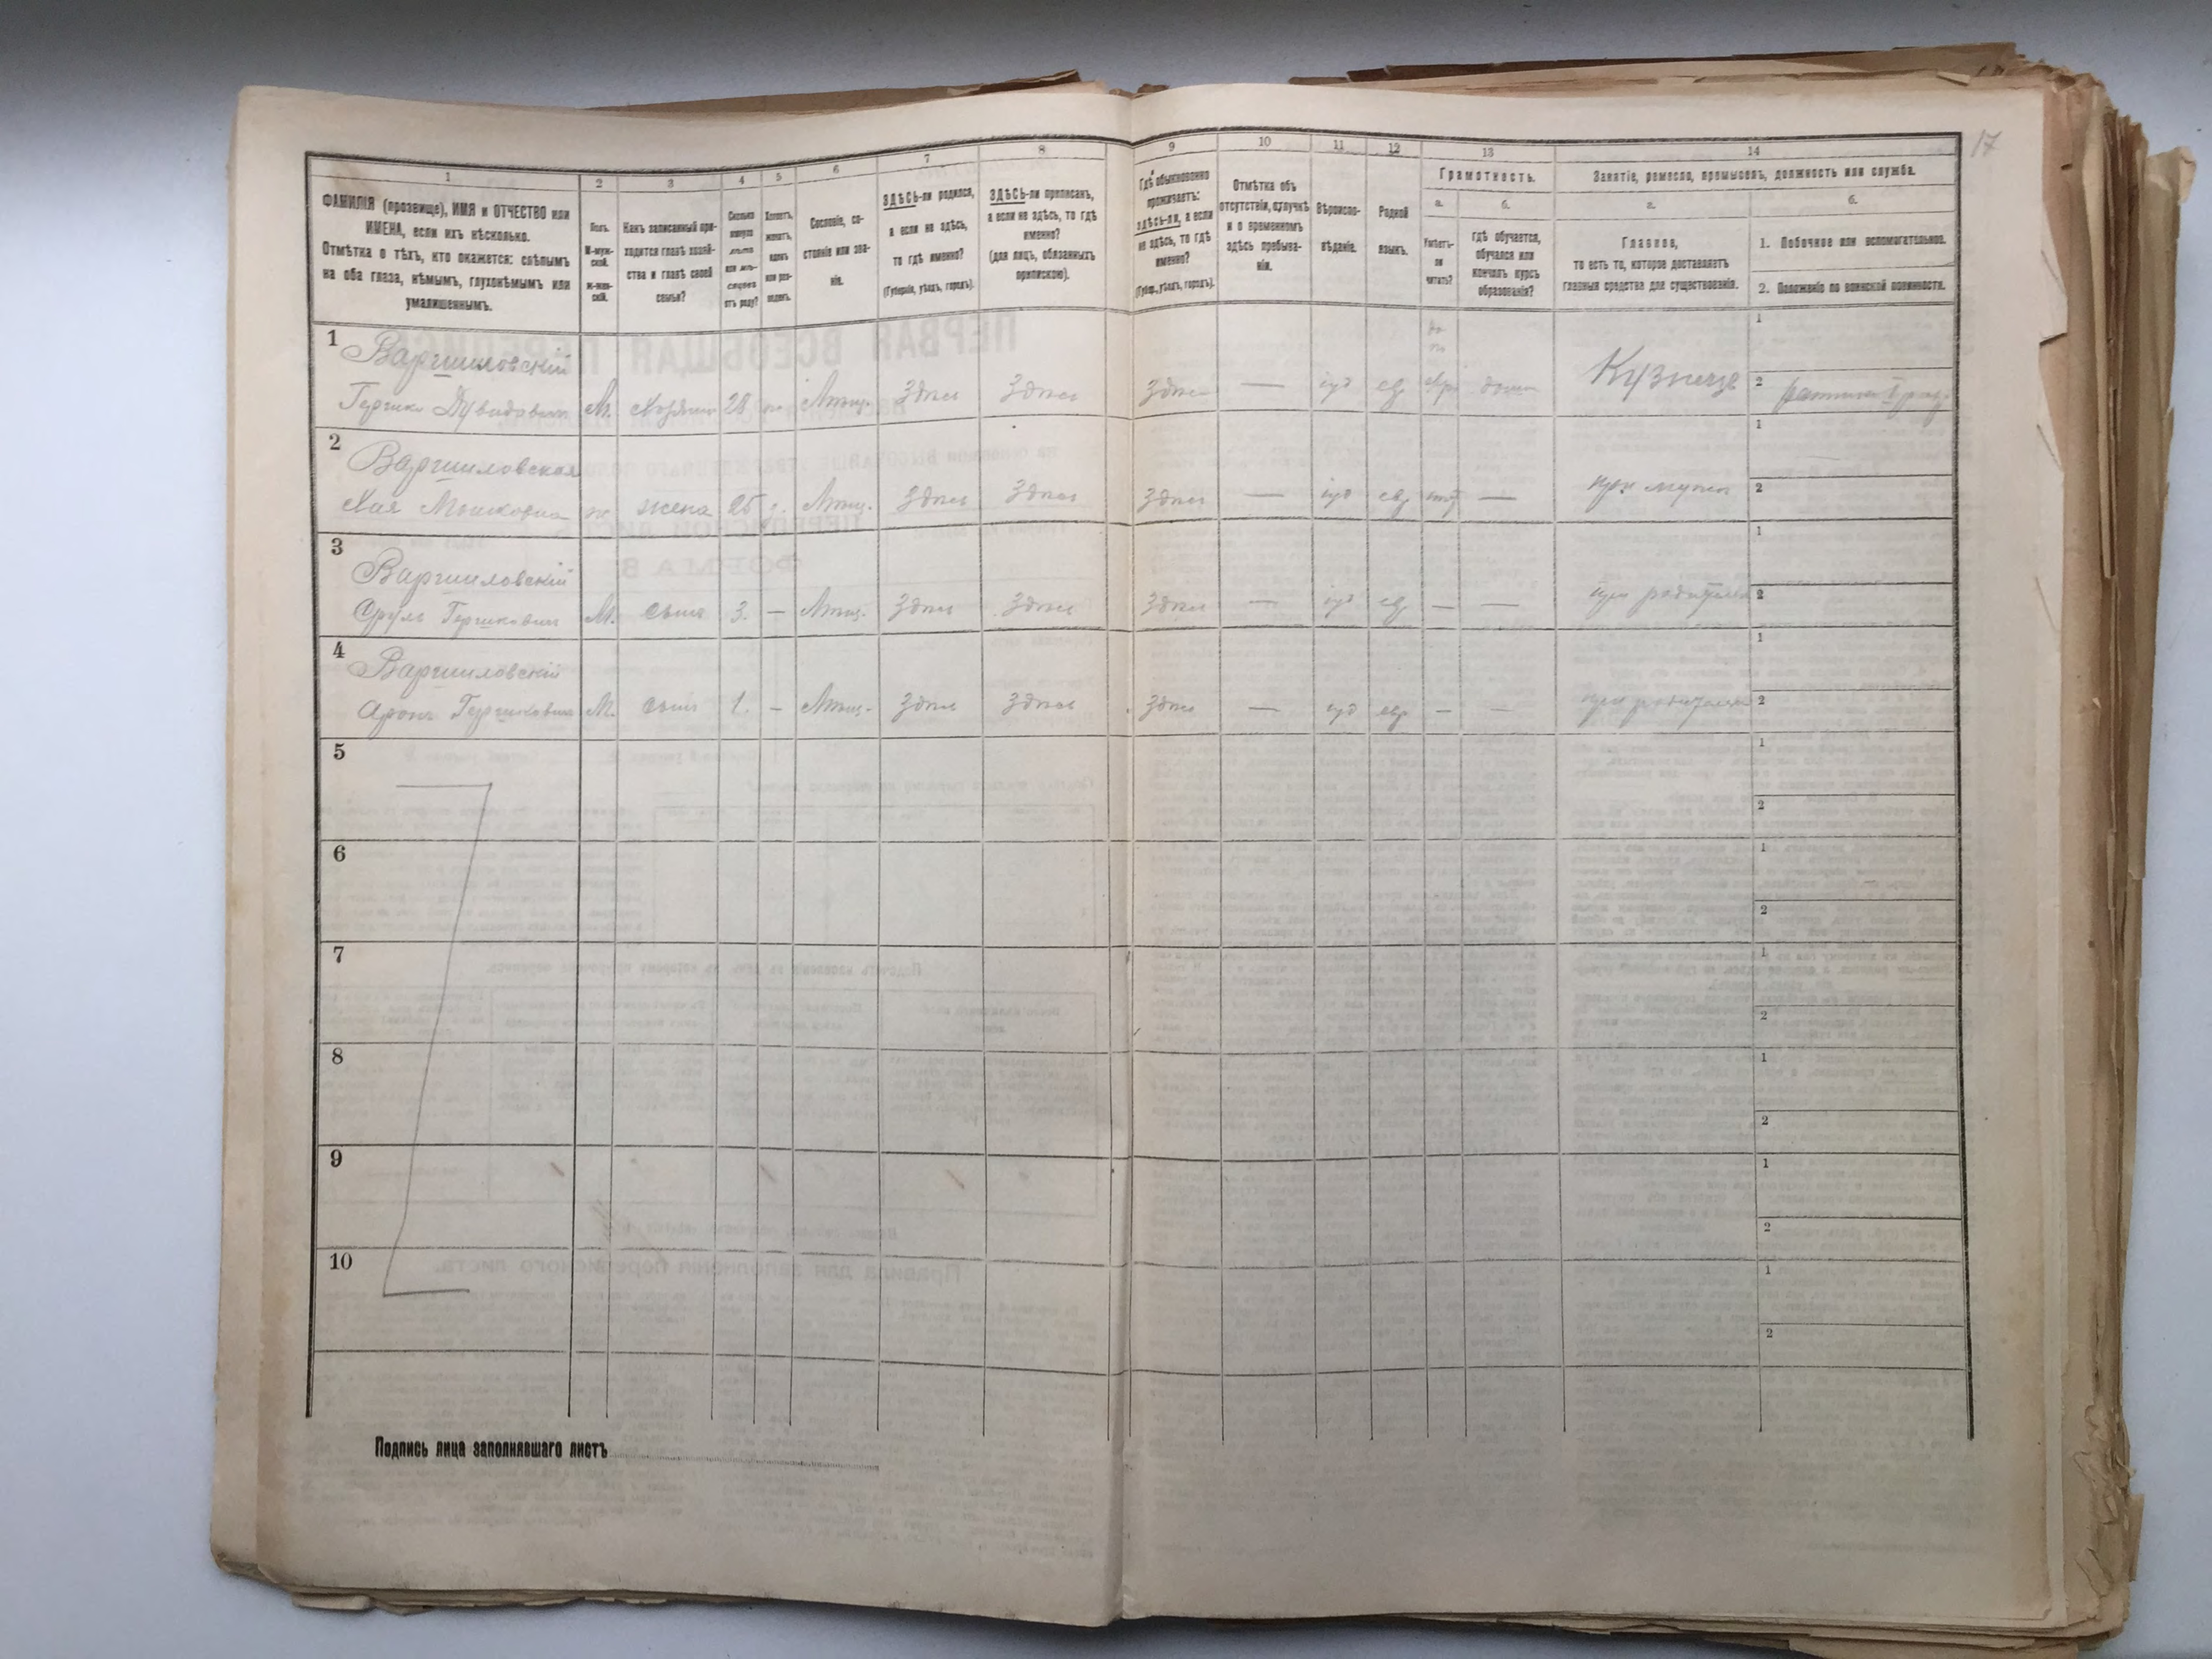 17
1
2
3
4
5
6
7
8
9
10
11
12
13
14
ФАМИЛІЯ (прозвище), ИМЯ и ОТЧЕСТВО или
ИМЕНА, если ихъ нѣсколько.
Отмѣтка о тѣхъ, кто окажется: слѣпымъ
на оба глаза, нѣмымъ, глухонѣмымъ или
умалишеннымъ.
Полъ.
М-муж-
ской.
Ж-жен-
скій.
Какъ записанный при-
ходится главѣ хозяй-
ства и главѣ своей
семьи?
Сколько
минуло
лѣтъ
или мѣ-
сяцевъ
отъ роду?
Холостъ,
женатъ,
вдовъ
или раз-
веденъ.
Сословіе, со-
стояніе или зва-
ніе.
ЗДѢСЬ-ли родился,
а если не здѣсь,
то гдѣ именно?
(Губернія, уѣздъ, городъ).
ЗДѢСЬ-ли приписанъ,
а если не здѣсь, то гдѣ
именно?
(для лицъ, обязанныхъ
припискою).
Гдѣ обыкновенно
проживаетъ:
здѣсь-ли, а если
не здѣсь, то гдѣ
именно?
(Губер., уѣздъ, городъ).
Отмѣтка объ
отсутствіи, отлучкѣ
и о временномъ
здѣсь пребыва-
ніи.
Вѣроиспо-
вѣданіе.
Родной
языкъ.
Грамотность.
а.
б.
Умѣетъ-
ли
читать?
гдѣ обучается,
обучался или
кончилъ курсъ
образованія?
Занятіе, ремесло, промыселъ, должность или служба.
а.
б.
Главное,
то есть то, которое доставляетъ
главныя средства для существованія.
1. Побочное или вспомогательное.
2. Положеніе по воинской повинности.
1 Варшиловскій
Гершко Дувидовичъ М. хозяинъ 28 ж Мѣщ. Здѣсь Здѣсь Здѣсь — іуд евр дома Кузнецъ 1
2
2 Варшиловская
Хая Мошковна ж жена 25 з. Мѣщ. Здѣсь Здѣсь Здѣсь — іуд евр нѣтъ — при мужѣ 1
2
3 Варшиловскій
Сруль Гершковичъ М. сынъ 3. — Мѣщ. Здѣсь Здѣсь Здѣсь — іуд евр — — при родителяхъ 1
2
4 Варшиловскій
Аронъ Гершковичъ М. сынъ 1. — Мѣщ. Здѣсь Здѣсь Здѣсь — іуд евр — — при родителяхъ 1
2
5 1
2
6 1
2
7 1
2
8 1
2
9 1
2
10 1
2
Подпись лица заполнявшаго листъ